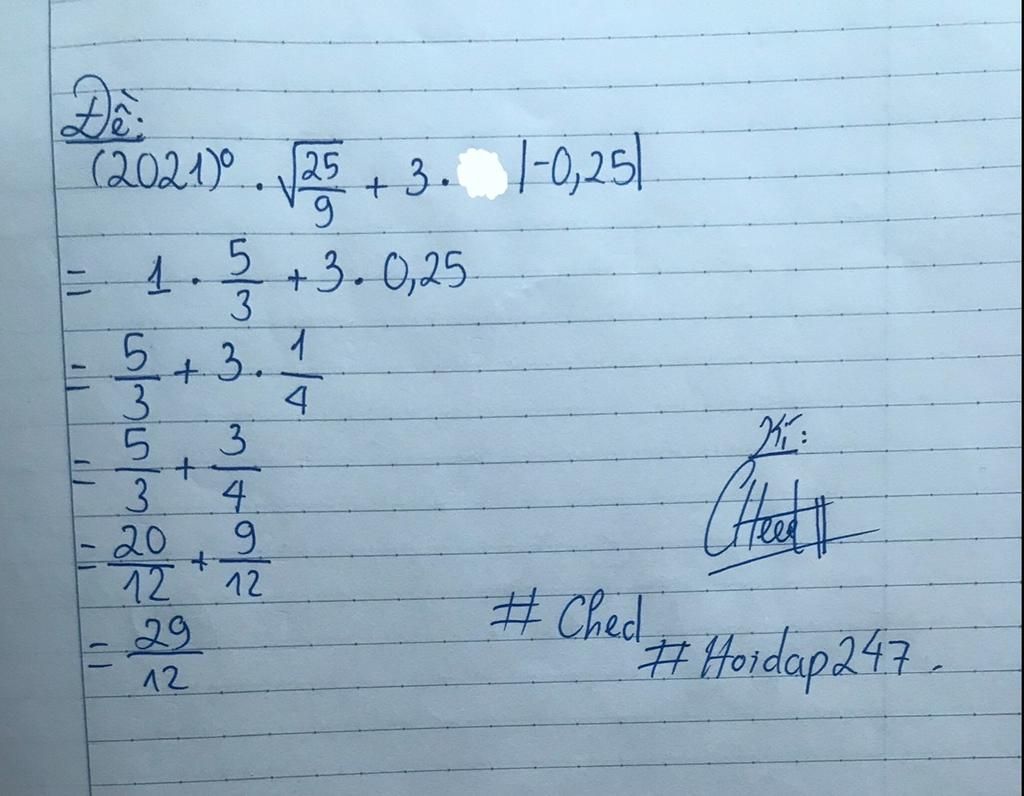 Đề:
(2021)⁰ . √25/9 + 3 . |-0,25|
= 1 . 5/3 + 3 . 0,25
= 5/3 + 3 . 1/4
= 5/3 + 3/4
= 20/12 + 9/12
= 29/12
Kí:
# Ched
# Hoidap247.